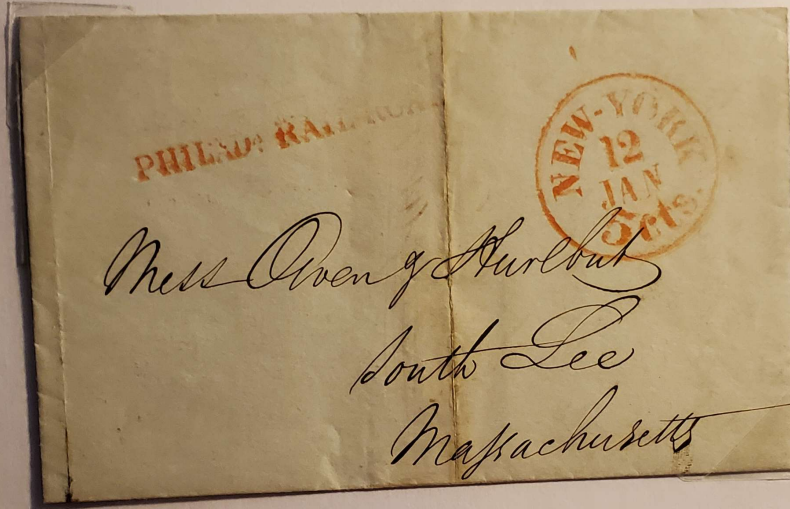 PHILADA RAILROAD
NEW-YORK
12
JAN
5 cts.
Mess Owen & Hurlbut
South Lee
Massachusetts